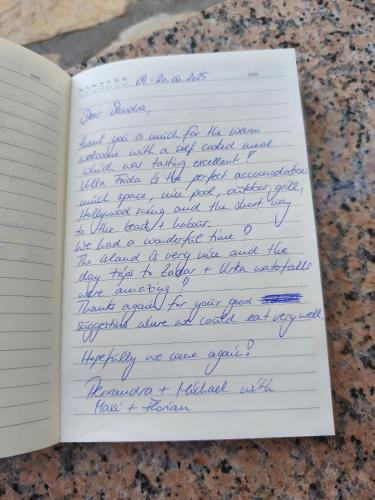 09.-20.06.2025
Dear Sandra,
thank you so much for the warm
welcome with a self cooked meal
which was tasting excellent!
Villa Frida is the perfect accomodation:
much space, nice pool, outdoor grill,
Hollywood swing and the short way
to the beach + habour.
We had a wonderful time!
The island is very nice and the
day trips to Zadar + Krka waterfalls
were amazing!
Thanks again for your good
suggestion where we could eat very well.
Hopefully we come again!
Alexandra + Michael with
Maxi + Florian